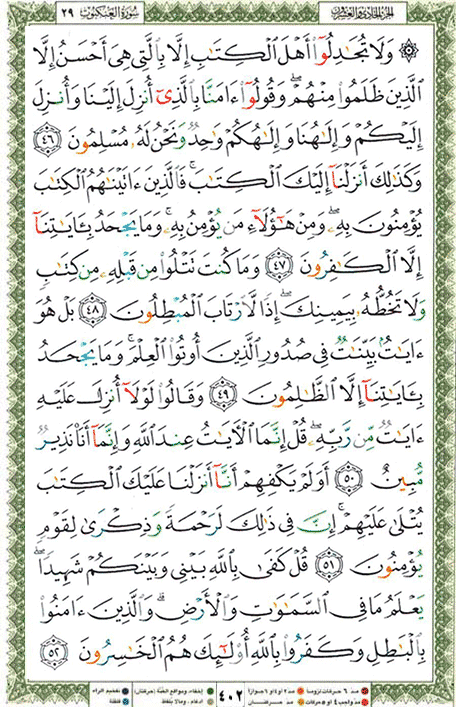 الجزء الحادي والعشرون سورة العنكبوت ٢٩
۞ وَلَا تُجَٰدِلُوٓا۟ أَهْلَ ٱلْكِتَٰبِ إِلَّا بِٱلَّتِى هِىَ أَحْسَنُ إِلَّا
ٱلَّذِينَ ظَلَمُوا۟ مِنْهُمْ ۖ وَقُولُوٓا۟ ءَامَنَّا بِٱلَّذِىٓ أُنزِلَ إِلَيْنَا وَأُنزِلَ
إِلَيْكُمْ وَإِلَٰهُنَا وَإِلَٰهُكُمْ وَٰحِدٌ وَنَحْنُ لَهُۥ مُسْلِمُونَ ٤٦
وَكَذَٰلِكَ أَنزَلْنَآ إِلَيْكَ ٱلْكِتَٰبَ ۚ فَٱلَّذِينَ ءَاتَيْنَٰهُمُ ٱلْكِتَٰبَ
يُؤْمِنُونَ بِهِۦ ۖ وَمِنْ هَٰٓؤُلَآءِ مَن يُؤْمِنُ بِهِۦ ۚ وَمَا يَجْحَدُ بِـَٔايَٰتِنَآ
إِلَّا ٱلْكَٰفِرُونَ ٤٧ وَمَا كُنتَ تَتْلُوا۟ مِن قَبْلِهِۦ مِن كِتَٰبٍ
وَلَا تَخُطُّهُۥ بِيَمِينِكَ ۖ إِذًا لَّٱرْتَابَ ٱلْمُبْطِلُونَ ٤٨ بَلْ هُوَ
ءَايَٰتٌۢ بَيِّنَٰتٌ فِى صُدُورِ ٱلَّذِينَ أُوتُوا۟ ٱلْعِلْمَ ۚ وَمَا يَجْحَدُ
بِـَٔايَٰتِنَآ إِلَّا ٱلظَّٰلِمُونَ ٤٩ وَقَالُوا۟ لَوْلَآ أُنزِلَ عَلَيْهِ
ءَايَٰتٌ مِّن رَّبِّهِۦ ۖ قُلْ إِنَّمَا ٱلْـَٔايَٰتُ عِندَ ٱللَّهِ وَإِنَّمَآ أَنَا۠ نَذِيرٌ
مُّبِينٌ ٥٠ أَوَلَمْ يَكْفِهِمْ أَنَّآ أَنزَلْنَا عَلَيْكَ ٱلْكِتَٰبَ
يُتْلَىٰ عَلَيْهِمْ ۚ إِنَّ فِى ذَٰلِكَ لَرَحْمَةً وَذِكْرَىٰ لِقَوْمٍ
يُؤْمِنُونَ ٥١ قُلْ كَفَىٰ بِٱللَّهِ بَيْنِى وَبَيْنَكُمْ شَهِيدًا ۖ
يَعْلَمُ مَا فِى ٱلسَّمَٰوَٰتِ وَٱلْأَرْضِ ۗ وَٱلَّذِينَ ءَامَنُوا۟
بِٱلْبَٰطِلِ وَكَفَرُوا۟ بِٱللَّهِ أُو۟لَٰٓئِكَ هُمُ ٱلْخَٰسِرُونَ ٥٢
مد ٦ حركات لزوماً مد ٢ او ٤ او ٦ جوازاً
مد واجب ٤ او ٥ حركات مد حركتان
٤٠٢
إخفاء، ومواقع الغنة (حركتان) تفخيم الراء
ادغام، وما لا يلفظ قلقلة